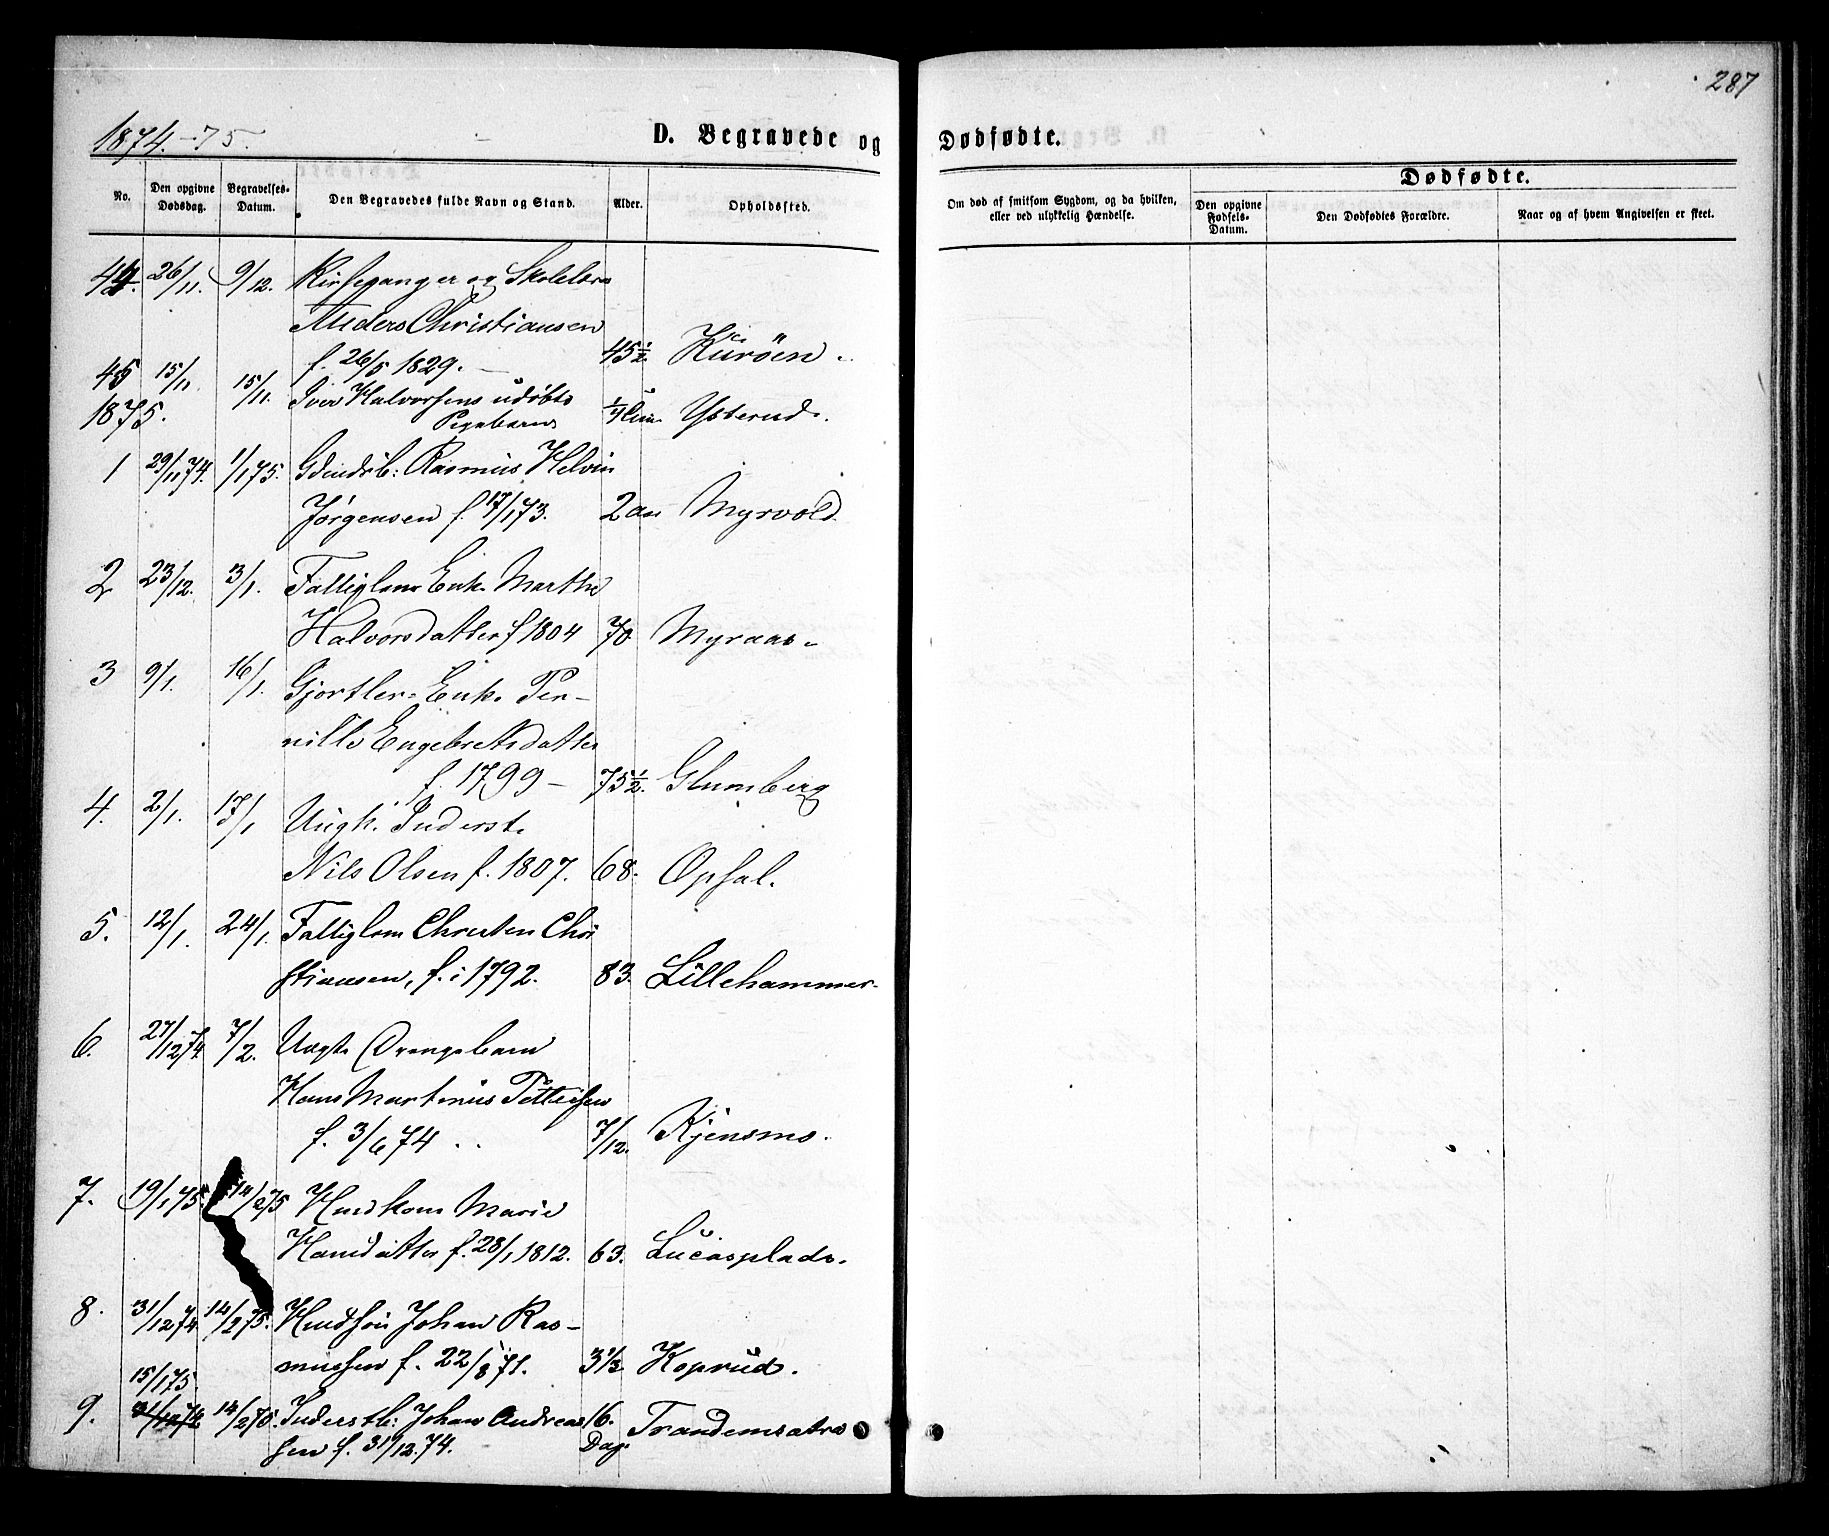 287
1874.-75.
D. Begravede og Dødfødte.
No.
Den opgivne Dødsdag.
Begravelses-Datum.
Den Begravedes fulde Navn og Stand.
Alder.
Opholdssted.
Om død af smitsom Sygdom, og da hvilken, eller ved ulykkelig Hændelse.
Dødfødte.
Den opgivne Fødsels-Datum.
Den Dødfødtes Forældre.
Naar og af hvem Angivelsen er skeet.
44. 26/11. 9/12. Kirkesanger og Skolelærer
Anders Christiansen
f. 26/5 1829. 45½. Kurøen.
45 15/11. 15/11. Iver Halvorsens udøbte
Pigebarn ¼ Ysterud.
1875.
1 29/11 74. 1/1 75. Rasmus Helvin
Jørgensen f. 17/1 73. 2 Myrvold
2 23/12. 3/1. Fattiglem Enk. Marthe
Halvorsdatter f 1804 70 Myraas.
3 9/1. 16/1. Gjørtler-Enk. Per-
nille Engebretsdatter
f. 1799 - 75½. Glumberg
4. 2/1. 17/1 Ungk. Inderst.
Nils Olsen f. 1807. 68. Opsal.
5. 12/1. 24/1. Fattiglem Christen Chri
stiansen, f. i 1792. 83. Lillehammer.
6. 27/12 74. 7/2. Uægte Drengebarn
Hans Martinius Pettersen
f. 3/6 74 7/12. Kjensmo.
7. 19/1 75. 14/2 75 Husmkone Marie
Hansdatter f. 28/1 1812. 63. Lucasplads.
8. 31/12 74 14/2 75. Husmsøn Johan Ras-
mussen f. 22/8 71. 3⅓ Koprud.
15/1 75.
9. 31/12 74 14/2 75. Inderstb: Johan Andreas
sen f. 31/12 74. 16. Dag. Trandemsætra